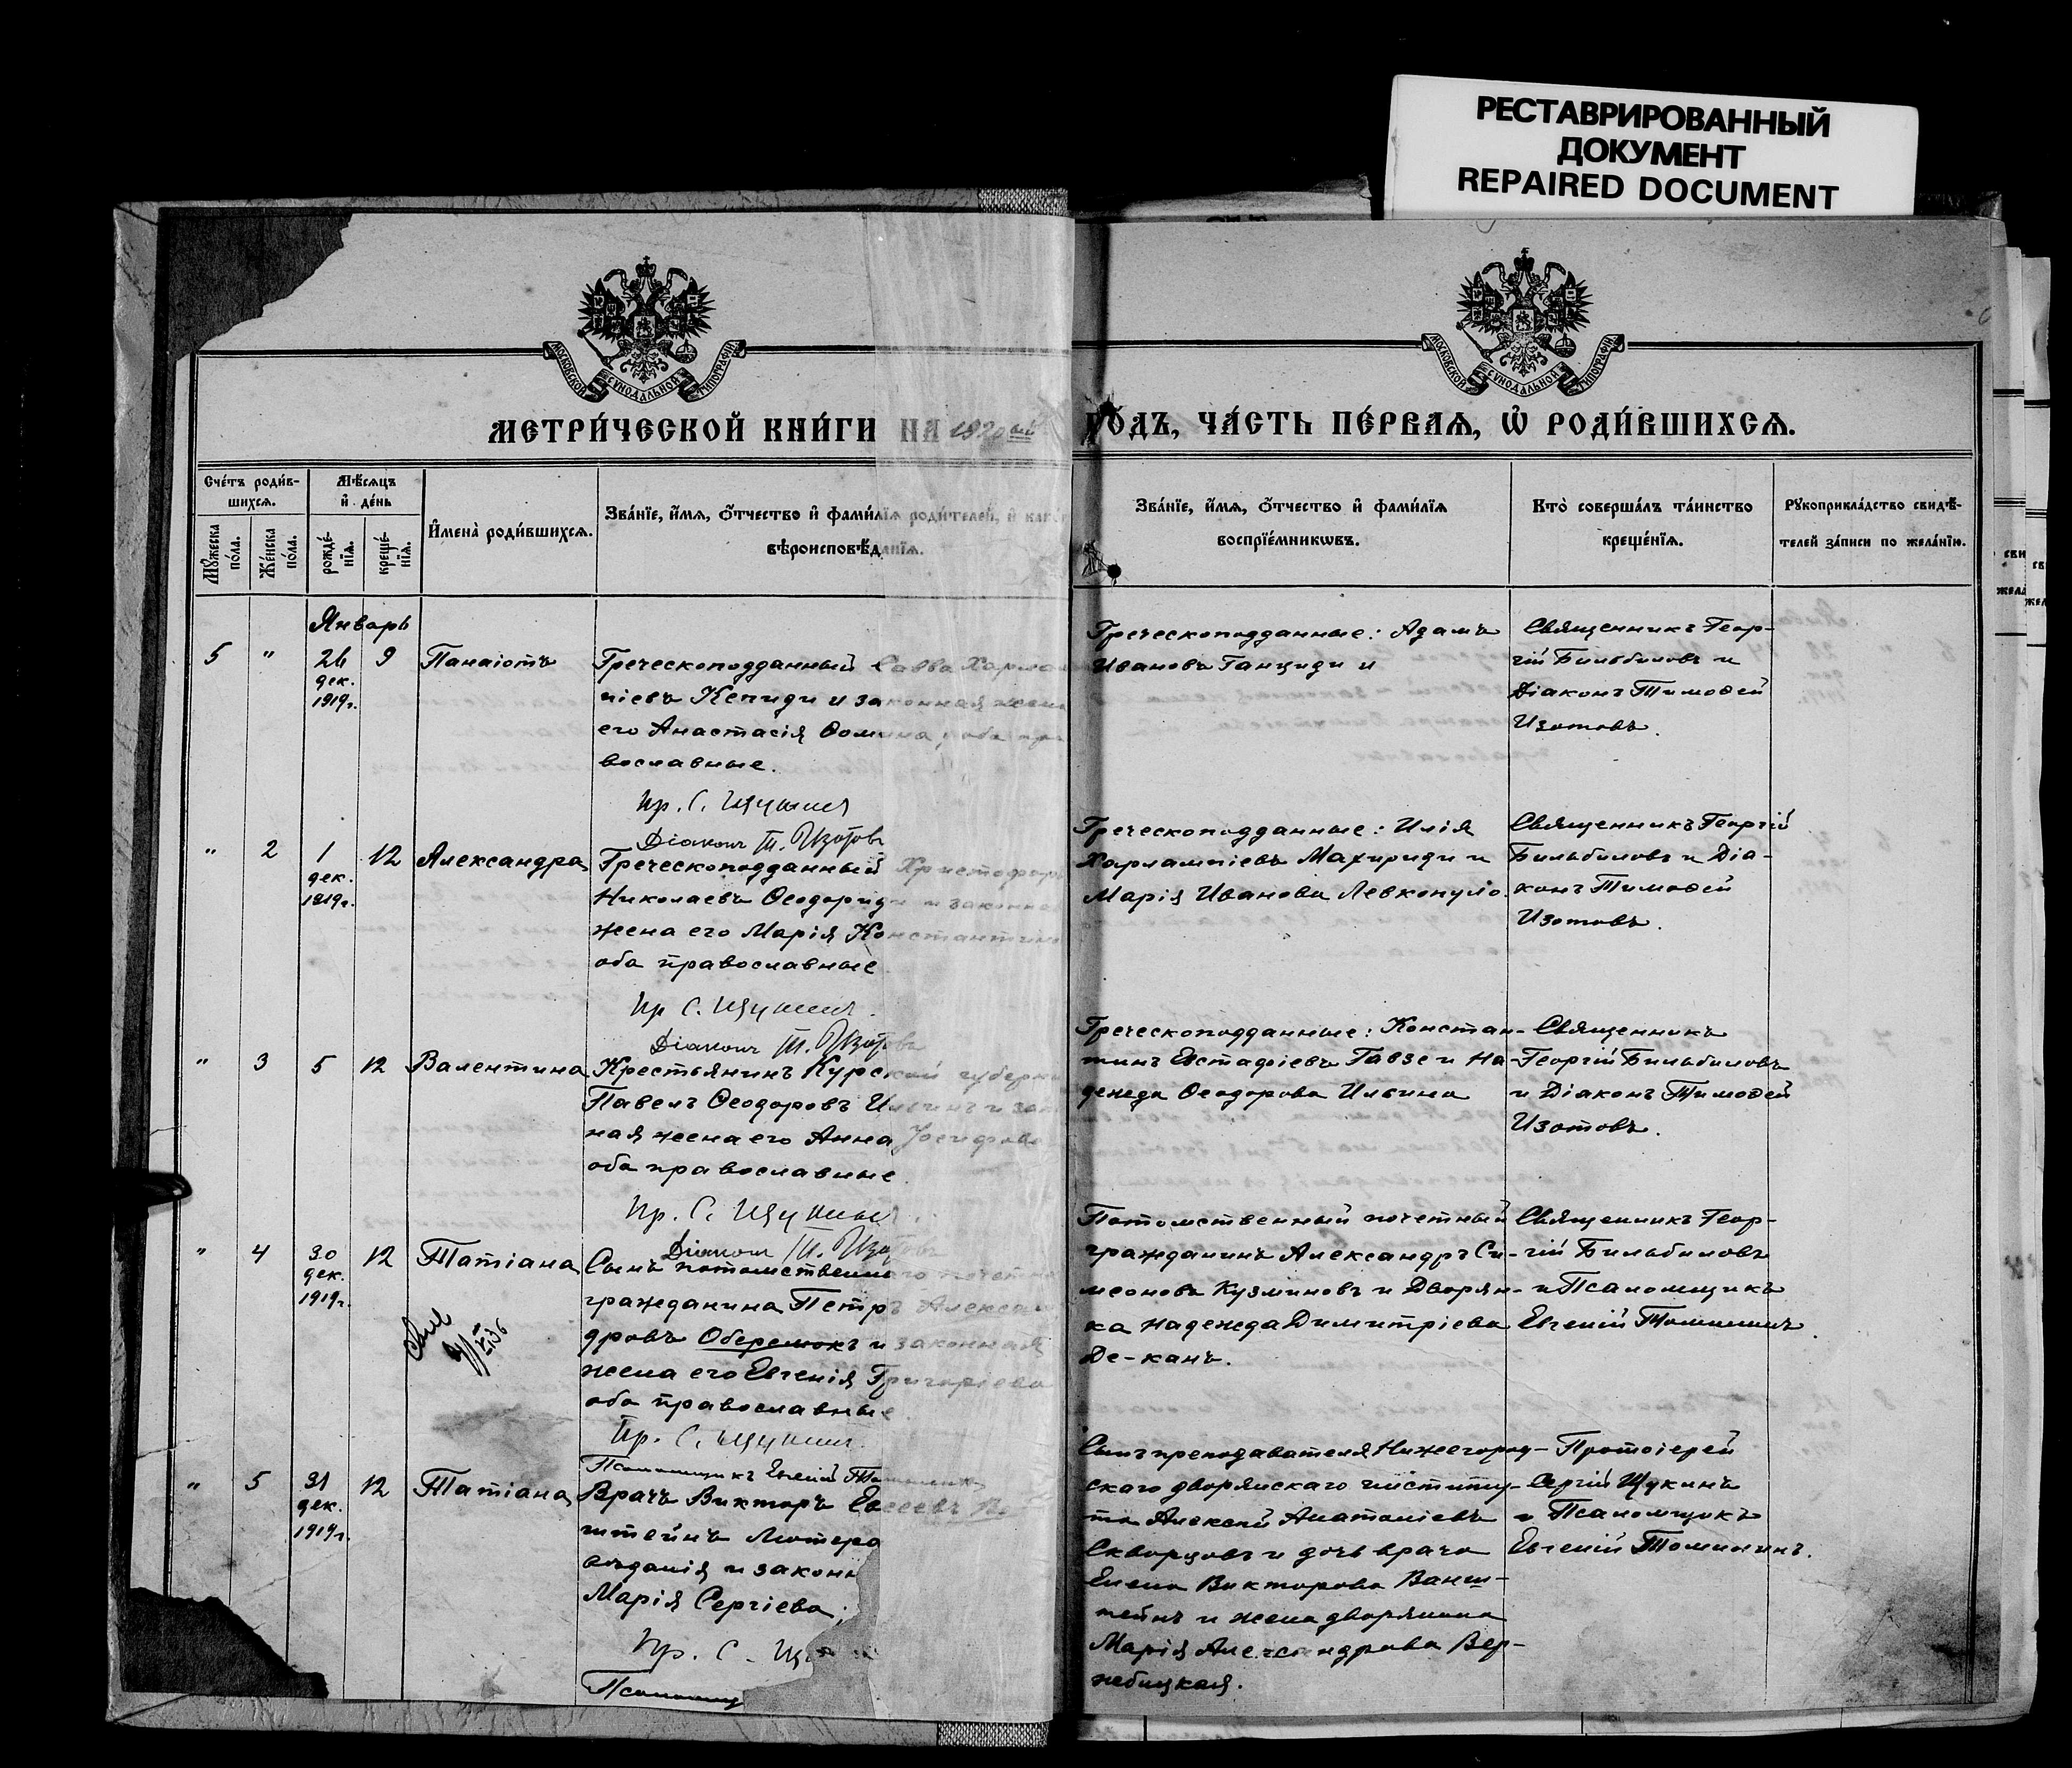 РЕСТАВРИРОВАННЫЙ
ДОКУМЕНТ
REPAIRED DOCUMENT
МОСКОВСКОЙ СѴНОДАЛЬНОЙ ТИПОГРАФІИ
МОСКОВСКОЙ СѴНОДАЛЬНОЙ ТИПОГРАФІИ
МЕТРИ́ЧЕСКОЙ КНИ́ГИ НА 1920ый ГО́ДЪ, ЧА́СТЬ ПЕ́РВАѦ, Ѽ РОДИ́ВШИХСѦ.
Сче́тъ роди́в-
шихсѧ.
Мꙋжеска по́ла.
Же́нска по́ла.
Мѣ́сѧцъ
и҆ де́нь
рожде́-
нїѧ.
креще́-
нїѧ.
И҆мена̀ роди́вшихсѧ.
Зва́нїе, и҆́мѧ, ѻ҆́тчество и҆ фами́лїѧ роди́телей, и҆
вѣроисповѣ́данїѧ.
Зва́нїе, и҆́мѧ, ѻ҆́тчество и҆ фами́лїѧ
воспрїе́мникѡвъ.
Кто̀ соверша́лъ та́инство
креще́нїѧ.
Рꙋкоприкла́дство свидѣ́-
телей за́писи по жела́нїю.
Январь
5 " 26 9 Панаіотъ
дек.
1919г.
Греческоподданный Савва Харлам
піевъ Кепиди и законная жена
его Анастасія Ѳомина, оба пра
вославные.
Пр. С. Щукинъ
Діаконъ Т. Изотовъ
Греческоподданные: Адамъ
Ивановъ Ганциди и
Священникъ Геор-
гій Бильбиловъ и
Діаконъ Тимоѳей
Изотовъ.
" 2 1 12 Александра
дек.
1919г.
Греческоподданный Христофоръ
Николаевъ Ѳеодориди и законная
жена его Марія Константинова
оба православные
Пр С. Щукинъ.
Діаконъ Т. Изотовъ
Греческоподданные: Илія
Харлампіевъ Махириди и
Марія Иванова Левкопуло.
Священникъ Георгій
Бильбиловъ и Діа-
конъ Тимоѳей
Изотовъ.
" 3 5 12 Валентина
Крестьянинъ Курской губерніи
Павелъ Ѳеодоровъ Ильинъ и закон
ная жена его Анна Іосифова
оба православные.
Пр. С. Щукинъ.
Діаконъ Т. Изотовъ
Греческоподданные: Констан-
тинъ Евстафіевъ Гавзе и На-
дежда Ѳеодорова Ильина
Священникъ
Георгій Бильбиловъ
и Діаконъ Тимоѳей
Изотовъ.
" 4 30 12 Татіана
дек.
1919г.
Сынъ потомственнаго почетнаго
гражданина Петръ Алексан
дровъ Оберемокъ и законная
жена его Евгенія Григоріева
оба православные.
Пр. С. Щукинъ.
Псаломщикъ Евгеній
Потомственный почетный
гражданинъ Александръ Си-
меоновъ Кузминовъ и Дворян-
ка Надежда Димитріева
Де-канъ.
Священникъ Геор-
гій Бильбиловъ
и Псаломщикъ
Евгеній
" 5 31 12 Татіана
дек.
1919г.
Врачъ Викторъ Евсеевъ
штейнъ Лютера
вѣданія и законн
Марія Сергіева,
Пр. С. Щу
Псаломщ
Сынъ преподавателя Нижегород-
скаго дворянскаго институ-
та Алексѣй Анатоліевъ
Скворцовъ и дочь врача
Елена Викторова Ванш-
тейнъ и жена дворянина
Марія Александрова Вер-
жбицкая.
Протоіерей
Сергій Щукинъ
и Псаломщикъ
Евгеній